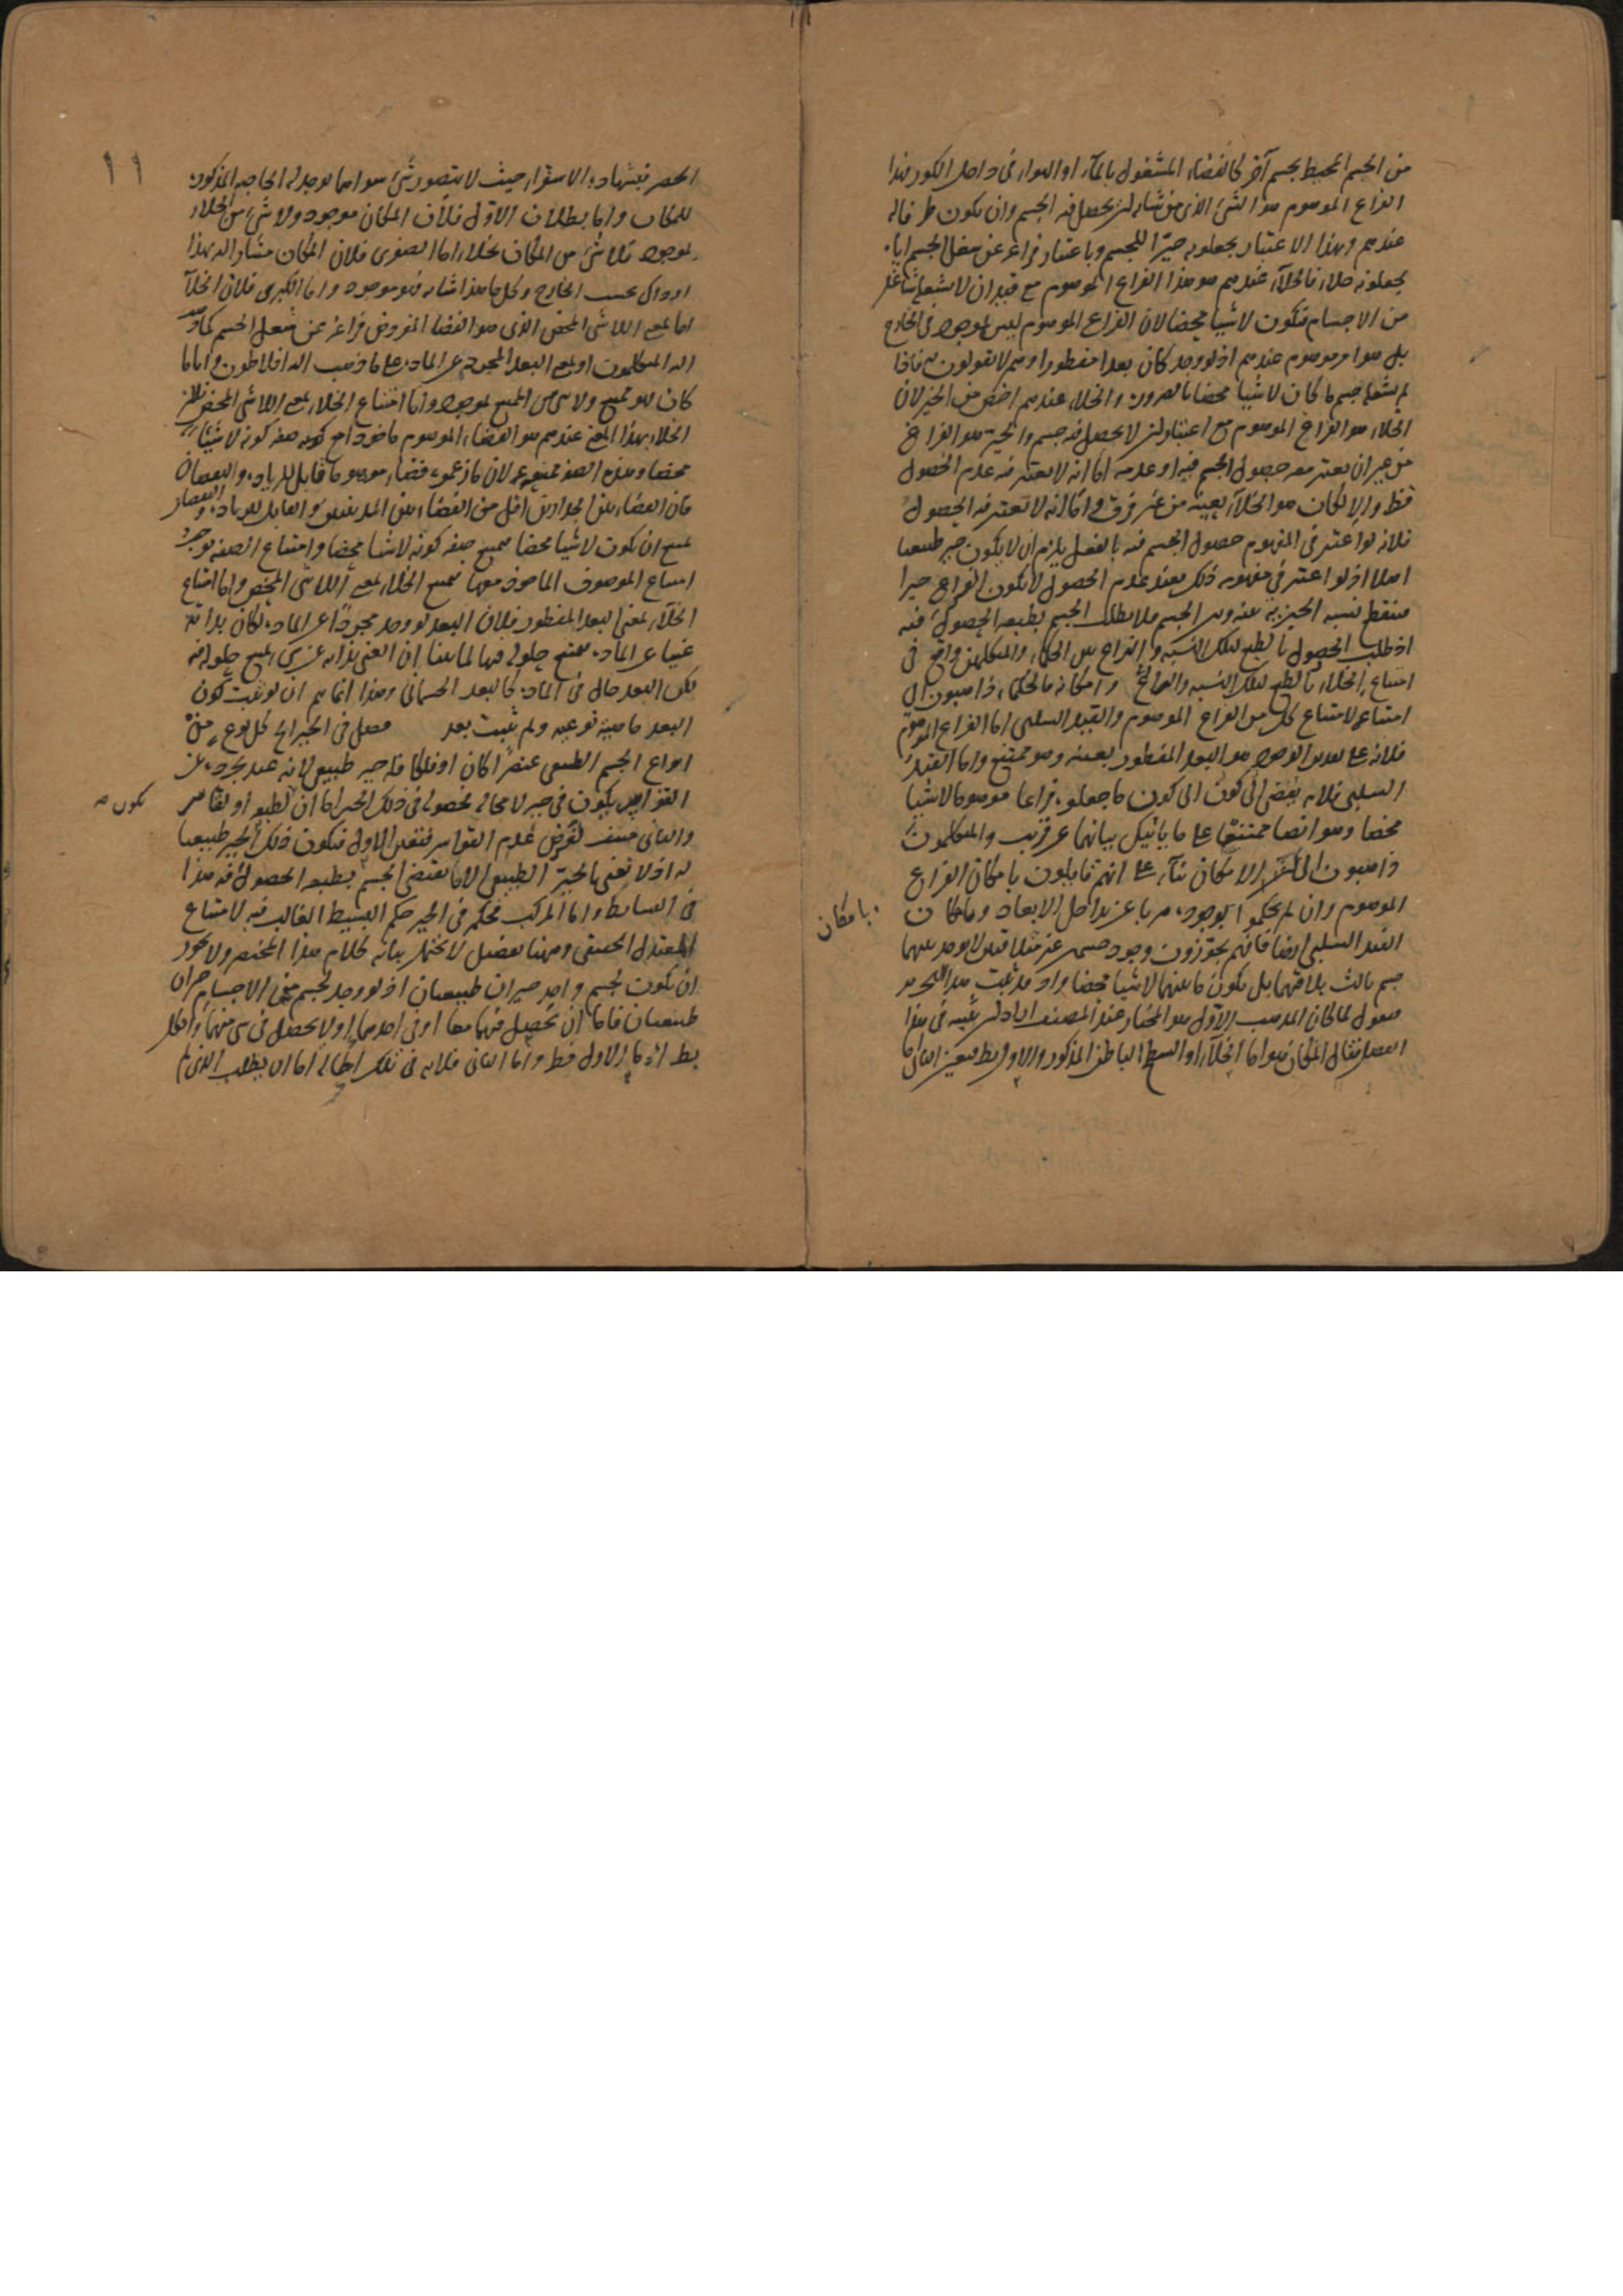 من الجسم المحيط بجسم آخر كالفضاء المشغول بالماء او الهواء فى داخل الكوز فهذا
الفراغ الموهوم هذا الشئ الذى من شانه ان يحصل فيه الجسم وان يكون ظرفا له
عندهم وبهذا الاعتبار يجعلونه حيزا للجسم وباعتبار فراغه عن شغل الجسم اياه
يجعلونه خلاء فالخلاء عندهم هو هذا الفراغ الموهوم مع قيد ان لا يشغله شاغل
من الاجسام فيكون لا شيئا محضا لان الفراغ الموهوم ليس بموجود فى الخارج
بل هو امر موهوم عندهم اذ لو وجد كان بعدا مفطورا وهم لا يقولون به فاذا
لم يشغله جسم ما كان لا شيئا محضا بالضرورة والخلاء عندهم اخص من الحيز لان
الخلاء هو الفراغ الموهوم مع اعتبار ان لا يحصل فيه جسم والحيز هو الفراغ
من غير ان يعتبر معه حصول الجسم فيه او عدمه اما انه لا يعتبر فيه عدم الحصول
فظ والا لكان هو الخلاء بعينه من غير فرق واما انه لا يعتبر فيه الحصول
فلانه لو اعتبر فى المفهوم حصول الجسم فيه بالفعل يلزم ان لا يكون حيز طبيعيا
اصلا اذ لو اعتبر فى مفهومه ذلك فعند عدم الحصول لا يكون الفراغ حيزا
فينقطع نسبة الحيزية عنه وبين الجسم فلا يطلب الجسم بطبعه الحصول فيه
اذ طلب الحصول بالطبع لتلك النسبة والنزاع بين الحكماء والمتكلمين واقع فى
امتناع الخلاء بالطبع لتلك النسبة وامكانه فالحكماء ذاهبون الى
امتناعه لامتناع كل من الفراغ الموهوم والقيد السلبى اما الفراغ الموهوم
فلانه على تقدير الوجود هو البعد المفطور بعينه وهو ممتنع واما القيد
السلبى فلانه يفضى الى كون ما جعلوه فراغا موهوما لا شيئا
محضا وهو ايضا ممتنع على ما ياتيك بيانهما عن قريب والمتكلمون
ذاهبون الى الامكان بناء على انهم قائلون بامكان الفراغ
الموهوم وان لم يحكموا بوجوده هربا عن تداخل الابعاد وبامكان
بامكان
القيد السلبى ايضا فانهم يجوزون وجود جسمين غير متلاقيين لا يوجد بينهما
جسم ثالث يلاقيهما بل يكون ما بينهما لا شيئا محضا واذ قد ثبت هذا التحرير
فنقول لما كان المذهب الاول هو المختار عند المصنف اراد ان يثبته فى هذا
الفصل فقال المكان هو اما الخلاء او السطح الباطن المذكور والاول بط فتعين الثانى اما
١١
الحصر فبشهادة الاستقراء حيث لا يتصور شئ سواهما يوجد له الخاصه المذكورة
للمكان واما بطلان الاول فلان المكان موجود ولا شئ من الخلاء
بموجود فلا شئ من المكان بخلاء اما الصغرى فلان المكان مشار اليه بهذا
او ذاك بحسب الخارج وكل ما هذا شانه فهو موجود واما الكبرى فلان الخلاء
اما بمعنى اللاشئ المحض الذى هو الفضاء المفروض فراغه عن شغل الجسم كما ذهب
اليه المتكلمون او بمعنى البعد المجرد عن المادة على ما ذهب اليه افلاطون واياما
كان فهو ممتنع ولا شئ من الممتنع بموجود واما امتناع الخلاء بمعنى اللاشئ المحض فلان
الخلاء بهذا المعنى عندهم هو الفضاء الموهوم ماخوذا مع صفة كونه لا شيئا
محضا وهذه الصفة ممتنعة لان ما زعموه فضاء موهوما قابل للزيادة والنقصان
فان الفضاء بين الجدارين اقل من الفضاء بين المدينتين والقابل للزيادة والنقصان
يمتنع ان يكون لا شيئا محضا فيمتنع صفة كونه لا شيئا محضا وامتناع الصفة يوجب
امتناع الموصوف الماخوذ معها فيمتنع الخلاء بمعنى اللاشئ المحض واما امتناع
الخلاء بمعنى البعد المفطور فلان البعد لو وجد مجردا عن المادة لكان بذاته
غنيا عن المادة فيمتنع حلوله فيها لما بينا ان الغنى بذاته عن شئ يمتنع حلوله فيه
لكن البعد حال فى المادة كالبعد الجسمانى وهذا انما يتم ان لو ثبت كون
البعد ماهية نوعيه ولم يثبت بعد فصل فى الحيز الخ كل نوع من
انواع الجسم الطبيعى عنصرا كان او فلكا فله حيز طبيعى لانه عند تجرده عن
القواسر يكون فى حيز لا محاله فحصوله فى ذلك الحيز اما ان لطبعه او لقاسر
يكون صح
والثانى منتف لفرض عدم القواسر فتعين الاول فيكون ذلك الحيز طبيعيا
له اذ لا نعنى بالحيز الطبيعى الا ما يقتضى الجسم بطبعه الحصول فيه هذا
فى البسايط واما المركب فحكمه فى الحيز حكم البسيط الغالب فيه لامتناع
المعتدل الحقيقى وههنا تفصيل لا يحتمل بيانه كلام هذا المختصر ولا يجوز
ان يكون لجسم واحد حيزان طبيعيان اذ لو وجد لجسم من الاجسام حيزان
طبيعيان فاما ان يحصل فيهما معا او فى احدهما او لا يحصل فى شئ منهما والكل
بط اما الاول فظ واما الثانى فلانه فى تلك الحالة اما ان يطلب الذى لم